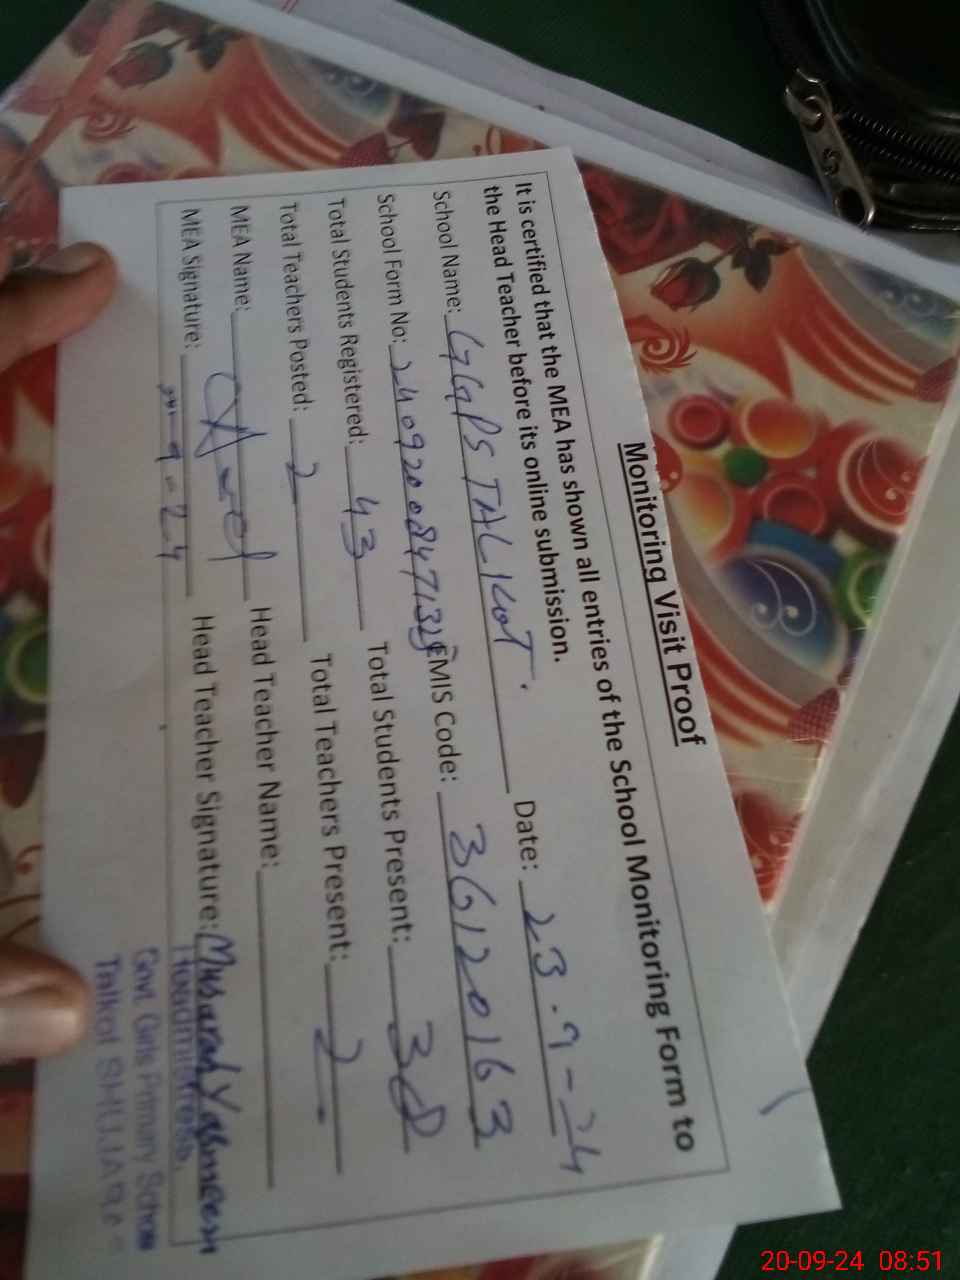 Monitoring Visit Proof
It is certified that the MEA has shown all entries of the School Monitoring Form to
the Head Teacher before its online submission.
School Name: GGPS TALKOT. Date: 23.9-24
School Form No: EMIS Code: 36120163
Total Students Registered: 43 Total Students Present: 38
Total Teachers Posted: 2 Total Teachers Present: 2
MEA Name: Head Teacher Name:
MEA Signature: Head Teacher Signature: Musarat Yasmeen
Headmistress,
Govt. Girls Primary School
Talkot SHUJABAD
20-09-24 08:51